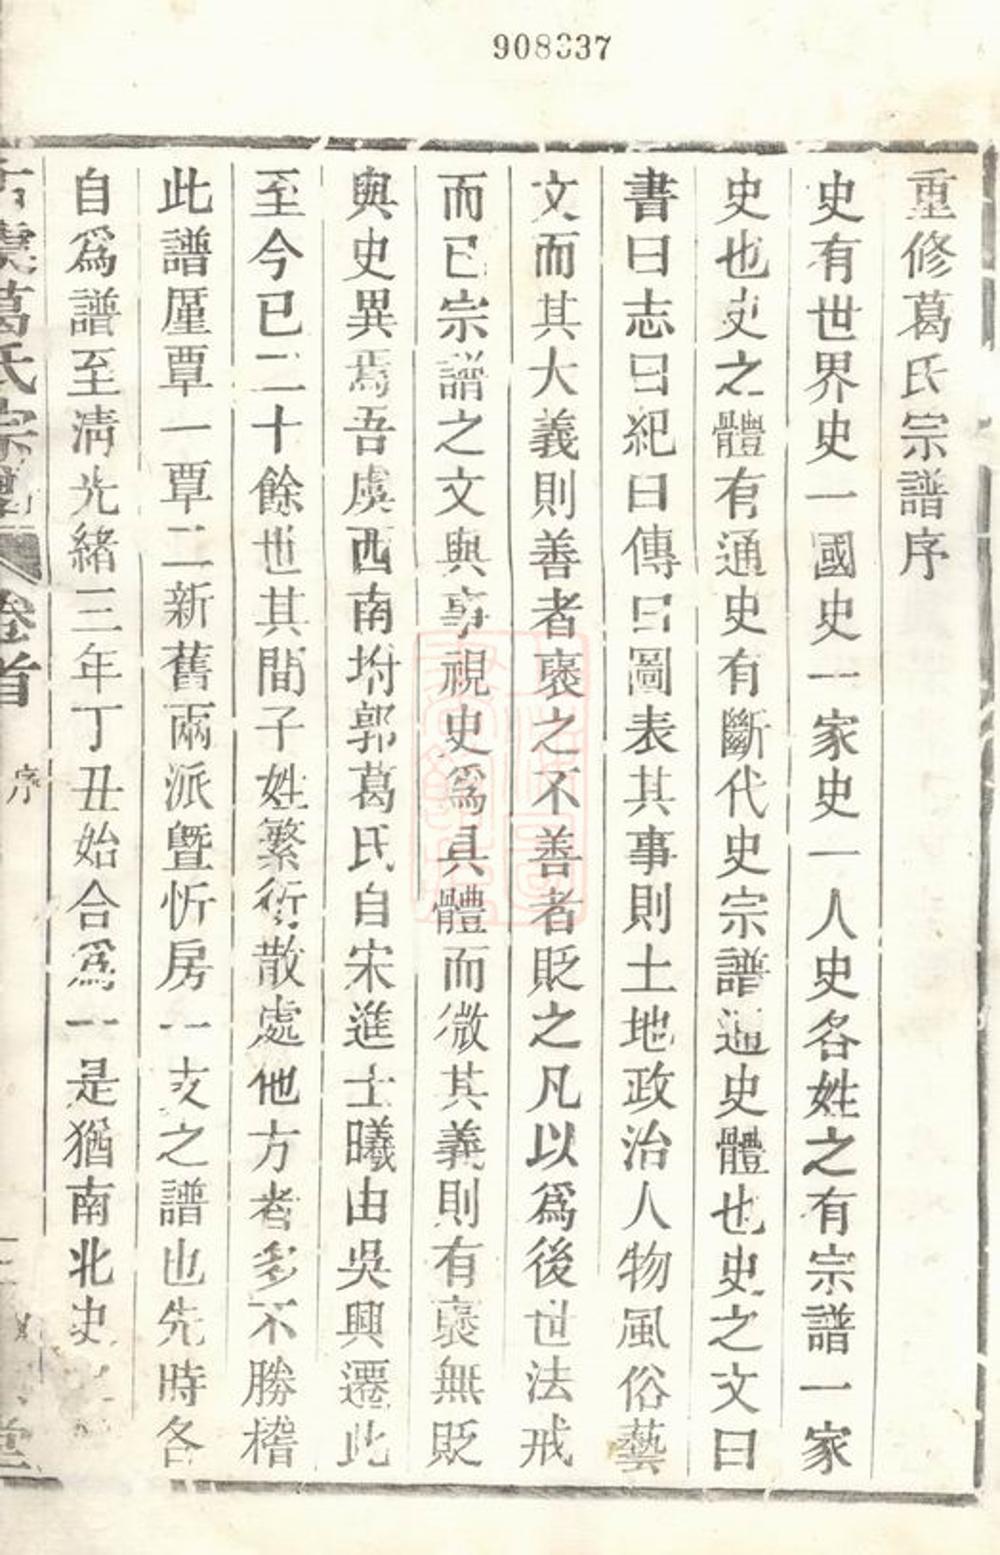 908337
重修葛氏宗譜序
史有世界史一國史一家史一人史各姓之有宗譜一家
史也史之體有通史有斷代史宗譜通史體也史之文曰
書曰志曰紀曰傳曰圖表其事則土地政治人物風俗藝
文而其大義則善者褒之不善者貶之凡以爲後世法戒
而已宗譜之文與事視史爲具體而微其義則有褒無貶
與史異焉吾虞西南坿郭葛氏自宋進士曦由吳興遷此
至今已二十餘世其間子姓繁衍散處他方者多不勝稽
此譜厪覃一覃二新舊兩派暨忻房一支之譜也先時各
自爲譜至淸光緒三年丁丑始合爲一是猶南北史
古虞葛氏宗譜 卷首 序 堂